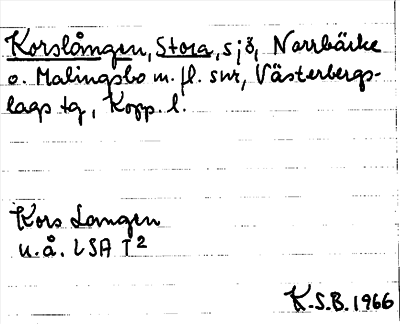 Korslången, Stora, sjö, Norrbärke
o. Malingsbo m. fl. snr, Västerbergs-
lags tg, Kopp. l.
Kors Langen
u.å. LSA I²
K.S.B. 1966